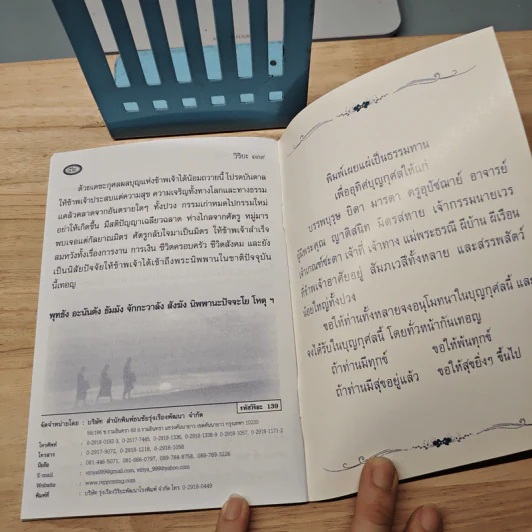 วิริยะ ๑๓๙
ด้วยเดชะกุศลผลบุญแห่งข้าพเจ้าได้น้อมถวายนี้ โปรดบันดาล
ให้ข้าพเจ้าประสบแต่ความสุข ความเจริญทั้งทางโลกและทางธรรม
แคล้วคลาดจากอันตรายใดๆ ทั้งปวง กรรมเก่าหมดไปกรรมใหม่
อย่าให้เกิดขึ้น มีสติปัญญาเฉลียวฉลาด ห่างไกลจากศัตรู หมู่มาร
พบเจอแต่กัลยาณมิตร ศัตรูกลับใจมาเป็นมิตร ให้ข้าพเจ้าสำเร็จ
สมหวังทั้งเรื่องการงาน การเงิน ชีวิตครอบครัว ชีวิตสังคม และยัง
เป็นนิสัยปัจจัยให้ข้าพเจ้าได้เข้าถึงพระนิพพานในชาติปัจจุบัน
นี้เทอญ
พุทธัง อะนันตัง ธัมมัง จักกะวาลัง สังฆัง นิพพานะปัจจะโย โหตุ ฯ
รหัสวิริยะ 139
จัดจำหน่ายโดย : บริษัท สำนักพิมพ์ธนธัชรุ่งเรืองพัฒนา จำกัด
โทรศัพท์
โทรสาร
มือถือ
E-mail
Website
พิมพ์ที่
พิมพ์เผยแผ่เป็นธรรมทาน
เพื่ออุทิศบุญกุศลให้แก่
บรรพบุรุษ บิดา มารดา ครูอุปัชฌาย์ อาจารย์
ผู้มีพระคุณ ญาติสนิท มิตรสหาย เจ้ากรรมนายเวร
เจ้าเกณฑ์ชะตา เจ้าที่ เจ้าทาง แม่พระธรณี ผีบ้าน ผีเรือน
ที่ข้าพเจ้าอาศัยอยู่ สัมภเวสีทั้งหลาย และสรรพสัตว์
น้อยใหญ่ทั้งปวง
ขอให้ท่านทั้งหลายจงอนุโมทนาในบุญกุศลนี้ และ
จงได้รับในบุญกุศลนี้ โดยทั่วหน้ากันเทอญ
ถ้าท่านมีทุกข์ ขอให้พ้นทุกข์
ถ้าท่านมีสุขอยู่แล้ว ขอให้สุขยิ่งๆ ขึ้นไป